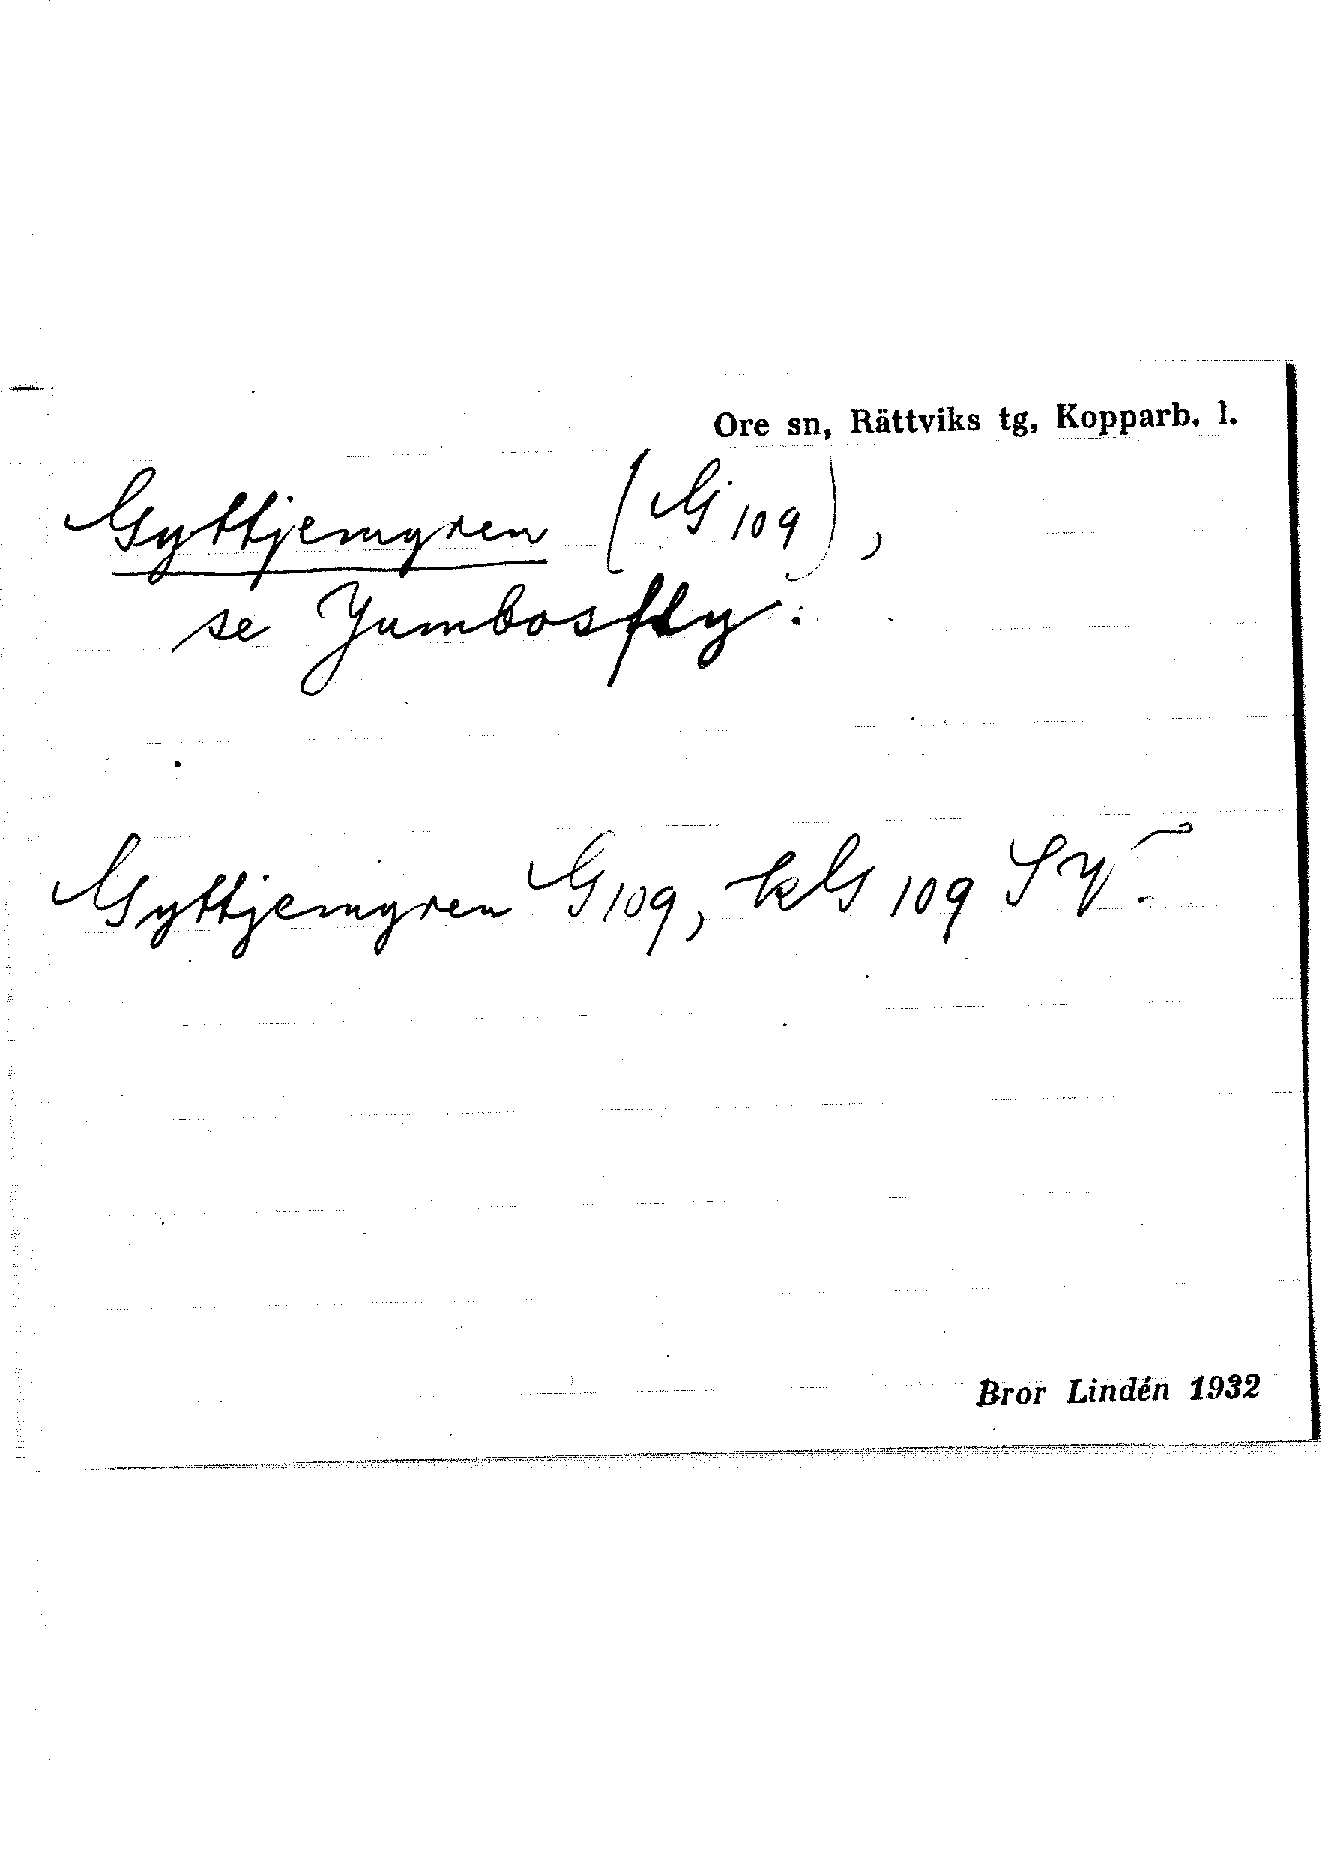 Ore sn, Rättviks tg, Kopparb. l.
Gyttjemyren (G 109),
se Jumbosfly.
Gyttjemyren G 109, kG 109 SV.
Bror Lindén 1932